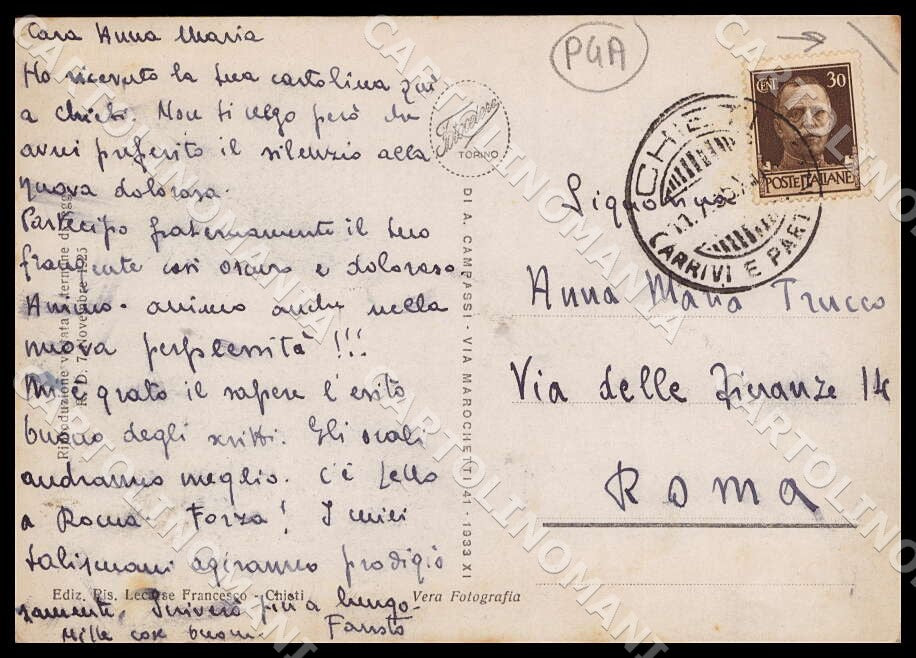 Cara Anna Maria
Ho ricevuto la tua cartolina qui
a Chieti. Non ti nego però che
avrei preferito il silenzio alla
nuova dolorosa.
Partecipo fraternamente il tuo
frangente così oscuro e doloroso.
Animo - animo anche nella
nuova perplessità!!!
Mi è grato il sapere l'esito
buono degli scritti. Gli orali
andranno meglio. C'è Lello
a Roma Forza! I miei
talismani agiranno prodigio
samente. Scriverò più a lungo.
Mille cose buone. Fausto
Ediz. Pis. Lecce Francesco - Chieti
Vera Fotografia
Riproduzione vietata a termine di legge
R. D. 7 Novembre 1925
TORINO
DI A. CAMPASSI - VIA MAROCHETTI 41 - 1933 XI
PGA
CENT 30
POSTE ITALIANE
CHIETI
ARRIVI E PART
Signorina
Anna Maria Trucco
Via delle Fieranze 14
ROMA
CARTOLINOMANIA